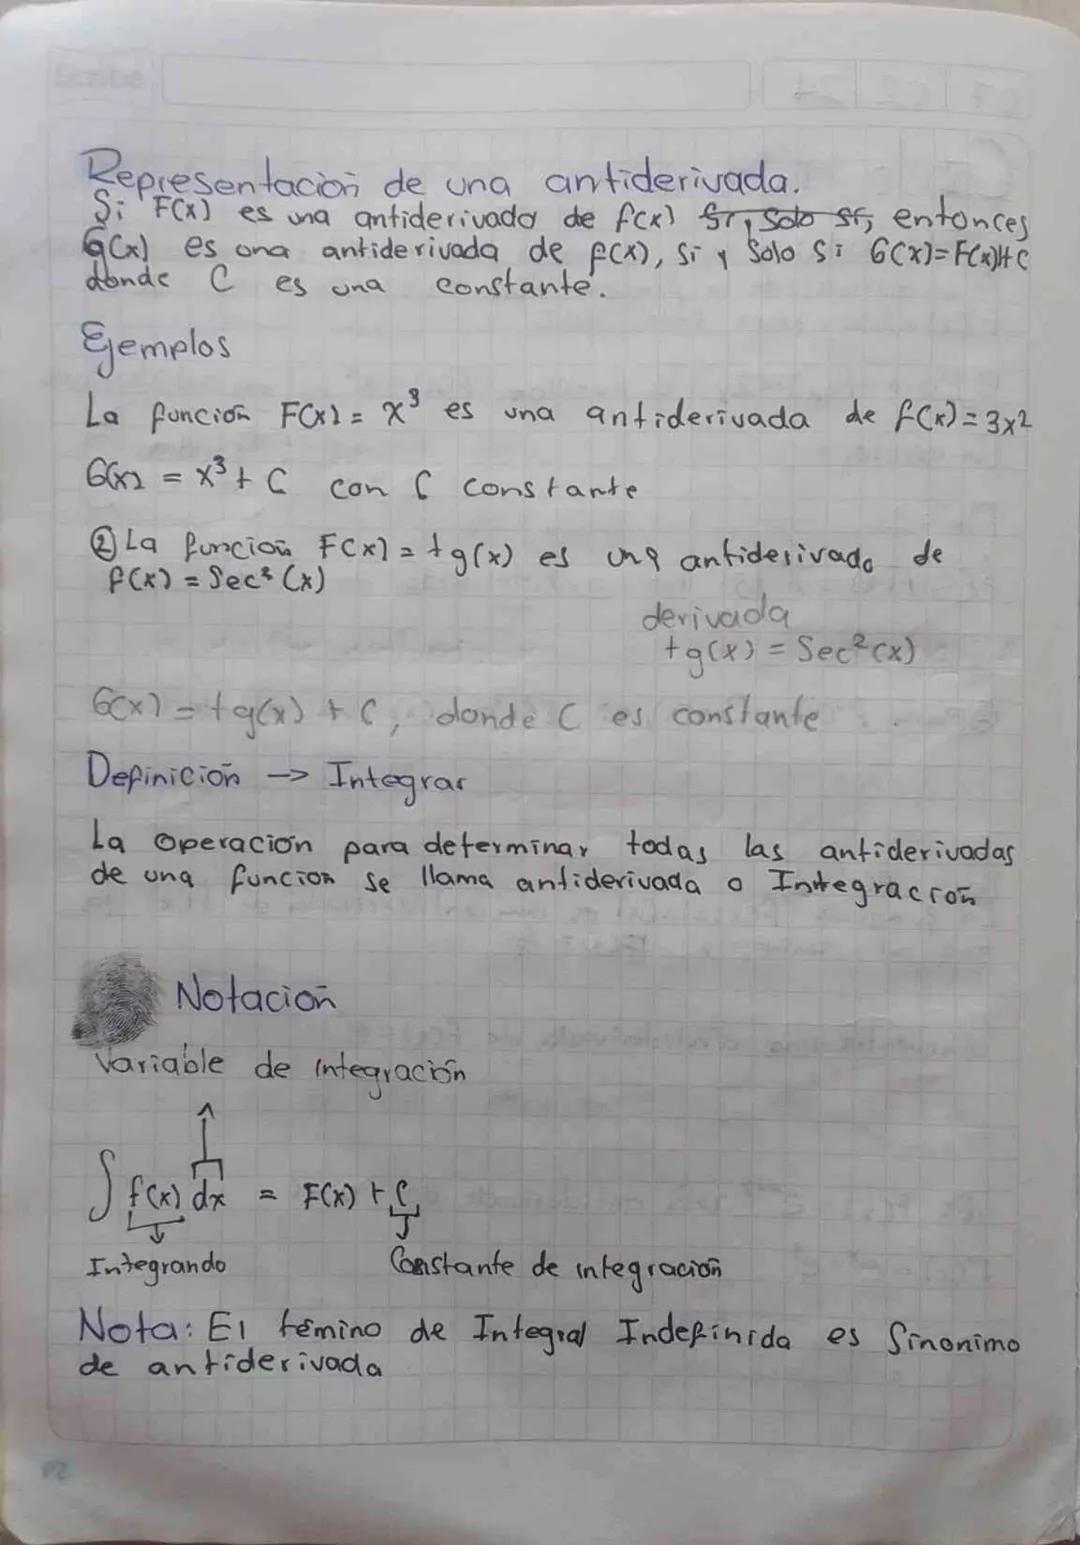 Scribe
Representación de una antiderivada.
Si F(x) es una antiderivado de f(x) Si, Solo si, entonces
G(x) es una antiderivada de f(x), Si y Solo Si G(x)=F(x)+C
donde C es una constante.
Ejemplos
La función F(x) = x³ es una antiderivada de f(x)=3x²
G(x) = x³ + C con C constante
② La función F(x) = tg(x) es una antiderivada de
f(x) = Sec² (x)
derivada
tg(x) = Sec²(x)
G(x) = tg(x) + C, donde C es constante
Definición -> Integrar
La operación para determinar todas las antiderivadas
de una función se llama antiderivada o Integración
Notación
Variable de integración
∫ f(x) dx = F(x) + C
Integrando Constante de integración
Nota: El témino de Integral Indefinida es Sinonimo
de antiderivada